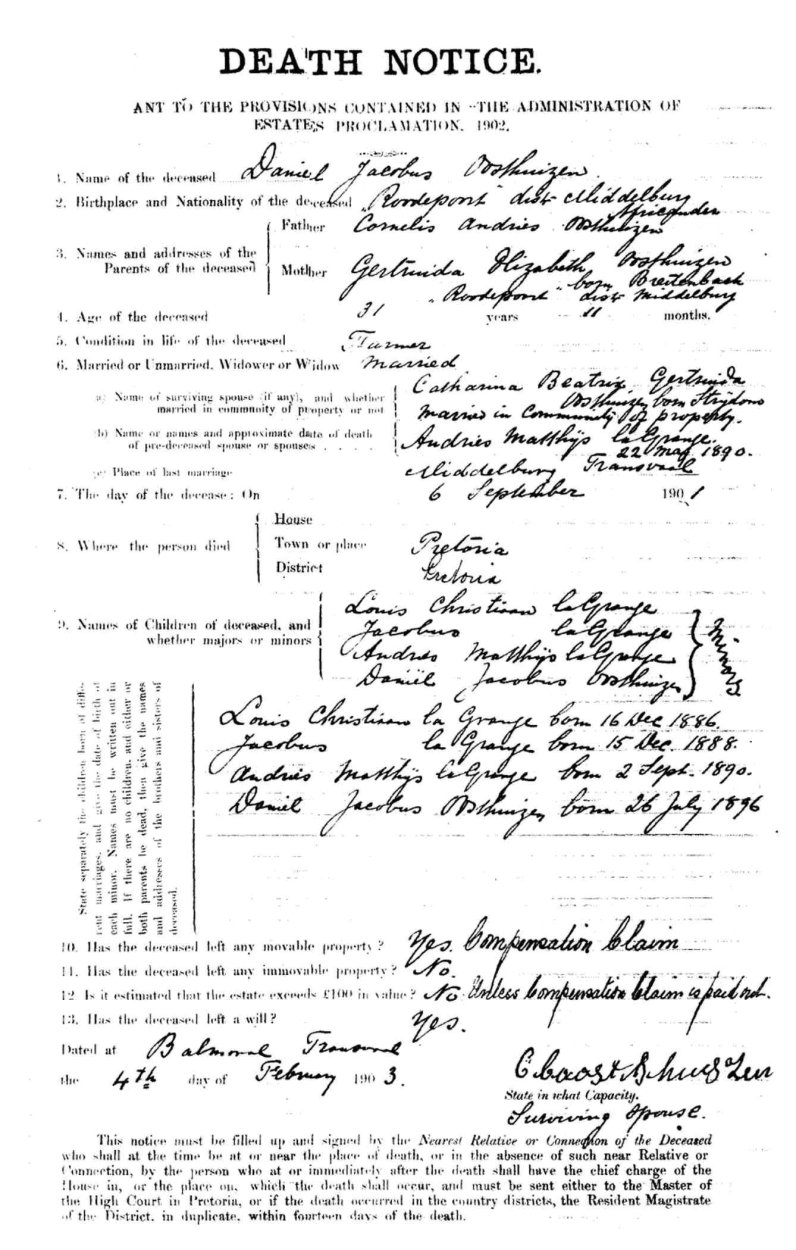 DEATH NOTICE.
ANT TO THE PROVISIONS CONTAINED IN THE ADMINISTRATION OF
ESTATES PROCLAMATION, 1902.
1. Name of the deceased Daniel Jacobus Oosthuizen
2. Birthplace and Nationality of the deceased "Roodepoort" distr Middelburg
Africander
3. Names and addresses of the Parents of the deceased
Father Cornelis Andries Oosthuizen
Mother Gertruida Elizabeth Oosthuizen
born Breitenbach
"Roodepoort" distr Middelburg
4. Age of the deceased 31 years 11 months.
5. Condition in life of the deceased Farmer
6. Married or Unmarried, Widower or Widow Married
(a) Name of surviving spouse (if any), and whether
married in community of property or not
Catharina Beatrix Gertruida
Oosthuizen born Strijdom
Married in Community of property.
(b) Name or names and approximate date of death
of pre-deceased spouse or spouses . . . .
Andries Matthijs la Grange.
22 May 1890.
(c) Place of last marriage Middelburg Transvaal
7. The day of the decease: On 6 September 1901
8. Where the person died
House
Town or place Pretoria
District Pretoria
9. Names of Children of deceased, and
whether majors or minors
Louis Christiaan la Grange
Jacobus la Grange
Andries Matthijs la Grange
Daniël Jacobus Oosthuizen
Minors
State separately the children born of diffe-
rent marriages, and give the date of birth of
each minor. Names must be written out in
full. If there are no children, and either or
both parents be dead, then give the names
and addresses of the brothers and sisters of
deceased.
Louis Christiaan la Grange born 16 Dec 1886.
Jacobus la Grange born 15 Dec. 1888.
Andries Matthijs la Grange born 2 Sept. 1890.
Daniel Jacobus Oosthuizen born 26 July 1896
10. Has the deceased left any movable property? Yes. Compensation Claim
11. Has the deceased left any immovable property? No.
12. Is it estimated that the estate exceeds £100 in value? No Unless Compensation Claim is paid out.
13. Has the deceased left a will? Yes.
Dated at Balmoral Transvaal
the 4th day of February 1903.
State in what Capacity.
Surviving Spouse.
This notice must be filled up and signed by the Nearest Relative or Connection of the Deceased
who shall at the time be at or near the place of death, or in the absence of such near Relative or
Connection, by the person who at or immediately after the death shall have the chief charge of the
House in, or the place on, which the death shall occur, and must be sent either to the Master of
the High Court in Pretoria, or if the death occurred in the country districts, the Resident Magistrate
of the District, in duplicate, within fourteen days of the death.